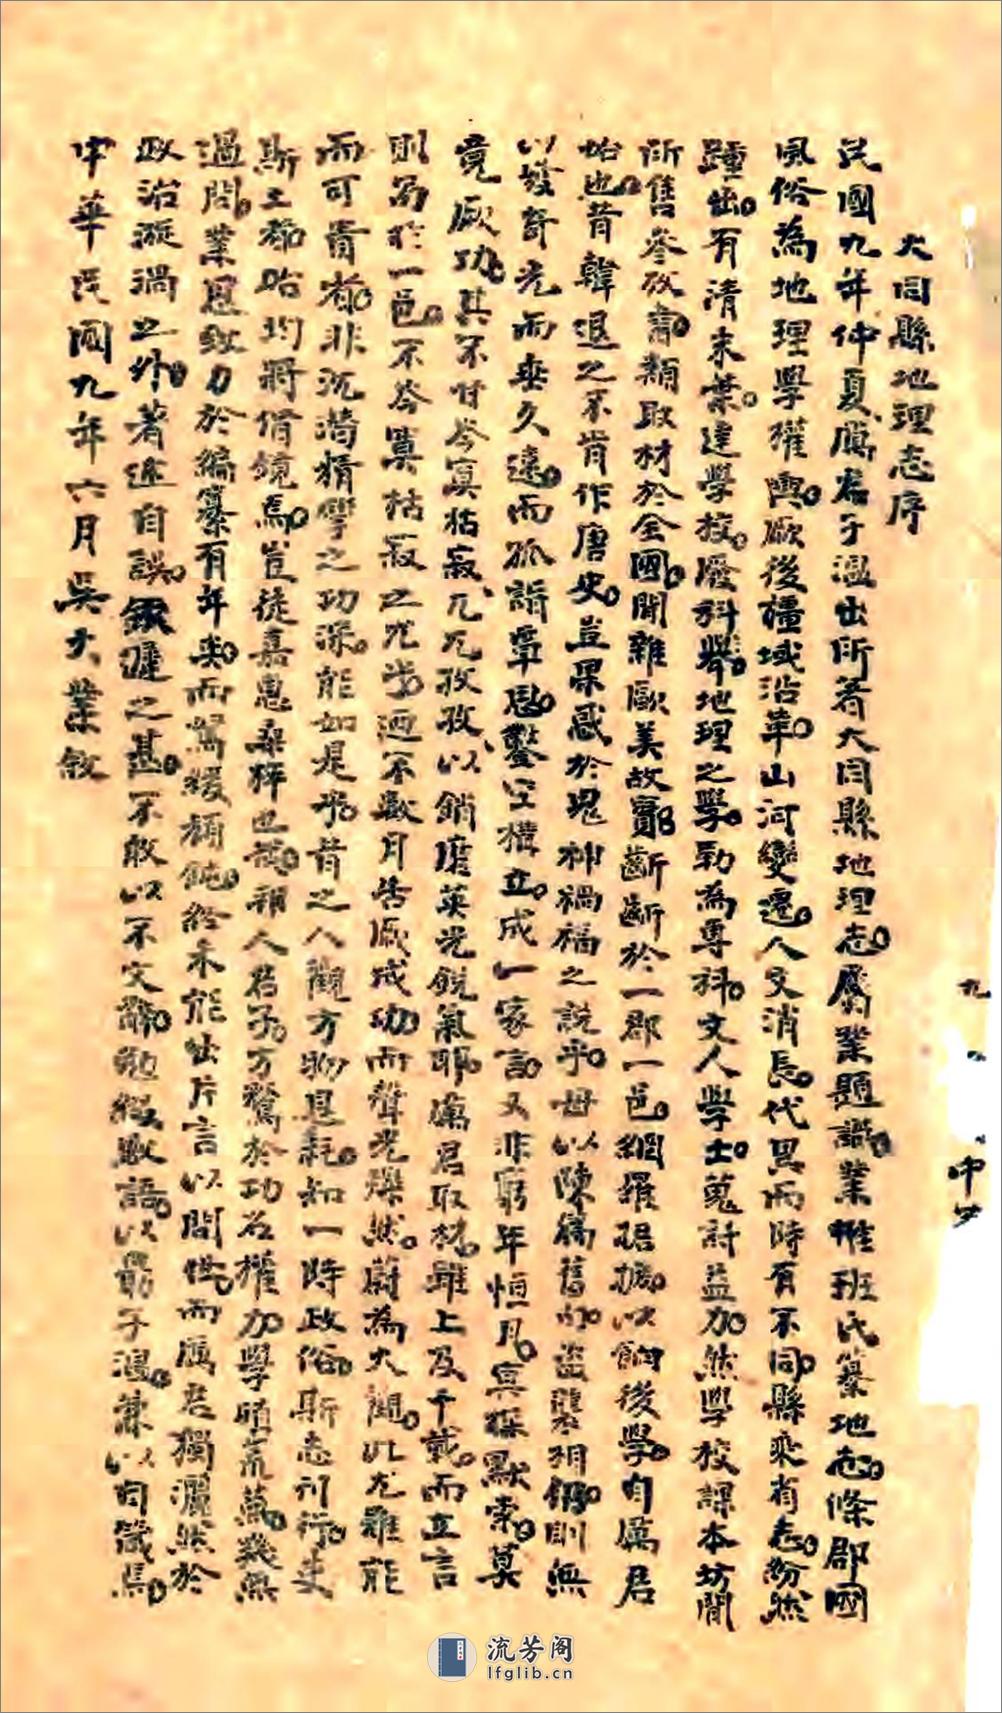 大同縣地理志序
民國九年仲夏厲君子溫出所著大同縣地理志。屬業題識。業惟班氏纂地志。條郡國
風俗為地理學權輿。厥後疆域沿革。山河變遷。人文消長。代異而時有不同。縣乘省志。紛然
踵出。有清末葉。達學校。廢科舉。地理之學。勒為專科。文人學士。蒐討益加。然學校課本坊間
所售參攷書類取材於全國。間雜歐美故實。斷斷於一郡一邑。網羅琚摭。以餉後學。自厲君
始也。昔韓退之不肯作唐史。豈果惑於鬼神禍福之說乎。毋以陳編舊。盜襲相仍。則無
以發奇光而垂久遠。而孤詣覃思。鑿空構立。成一家言。又非窮年恒月。冥探默索。莫
竟厥功。其不甘岑寂枯寂、兀兀孜孜、以銷磨英光銳氣耶。厲君取材。雖上及千載。而立言
則局於一邑。不岑寞枯寂之尤。迺不數月告厥成功。而聲光爍然。蔚為大觀。此尤難能
而可貴者。非沉潛精學之功深。能如是乎。昔之人觀方物。思耗。知一時政俗。斯志刊行。吏
斯土者。咍均將借鏡焉。豈徒嘉惠桑梓也哉。朝人君子。方騖於功名權力。學殖荒蕪。幾無
過問。業思致力於編纂有年矣。而駑緩頑鈍。終未能出片言以問世。而厲君獨灑然於
政治漩渦之外。著述自娛。欽遲之甚。不敢以不文辭。勉綴數語。以勗子溫。兼以自箴焉。
中華民國九年六月吳大業敘
九
中
流芳阁
lfglib.cn